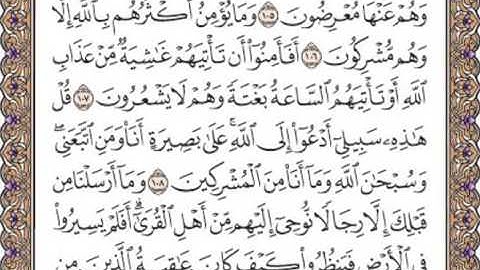 وَهُمْ عَنْهَا مُعْرِضُونَ ١٠٥ وَمَا يُؤْمِنُ أَكْثَرُهُم بِٱللَّهِ إِلَّا
وَهُم مُّشْرِكُونَ ١٠٦ أَفَأَمِنُوٓا۟ أَن تَأْتِيَهُمْ غَٰشِيَةٌ مِّنْ عَذَابِ
ٱللَّهِ أَوْ تَأْتِيَهُمُ ٱلسَّاعَةُ بَغْتَةً وَهُمْ لَا يَشْعُرُونَ ١٠٧ قُلْ
هَٰذِهِۦ سَبِيلِىٓ أَدْعُوٓا۟ إِلَى ٱللَّهِ ۚ عَلَىٰ بَصِيرَةٍ أَنَا۠ وَمَنِ ٱتَّبَعَنِى ۖ
وَسُبْحَٰنَ ٱللَّهِ وَمَآ أَنَا۠ مِنَ ٱلْمُشْرِكِينَ ١٠٨ وَمَآ أَرْسَلْنَا مِن
قَبْلِكَ إِلَّا رِجَالًا نُّوحِىٓ إِلَيْهِم مِّنْ أَهْلِ ٱلْقُرَىٰٓ ۗ أَفَلَمْ يَسِيرُوا۟
فِى ٱلْأَرْضِ فَيَنظُرُوا۟ كَيْفَ كَانَ عَٰقِبَةُ ٱلَّذِينَ مِن